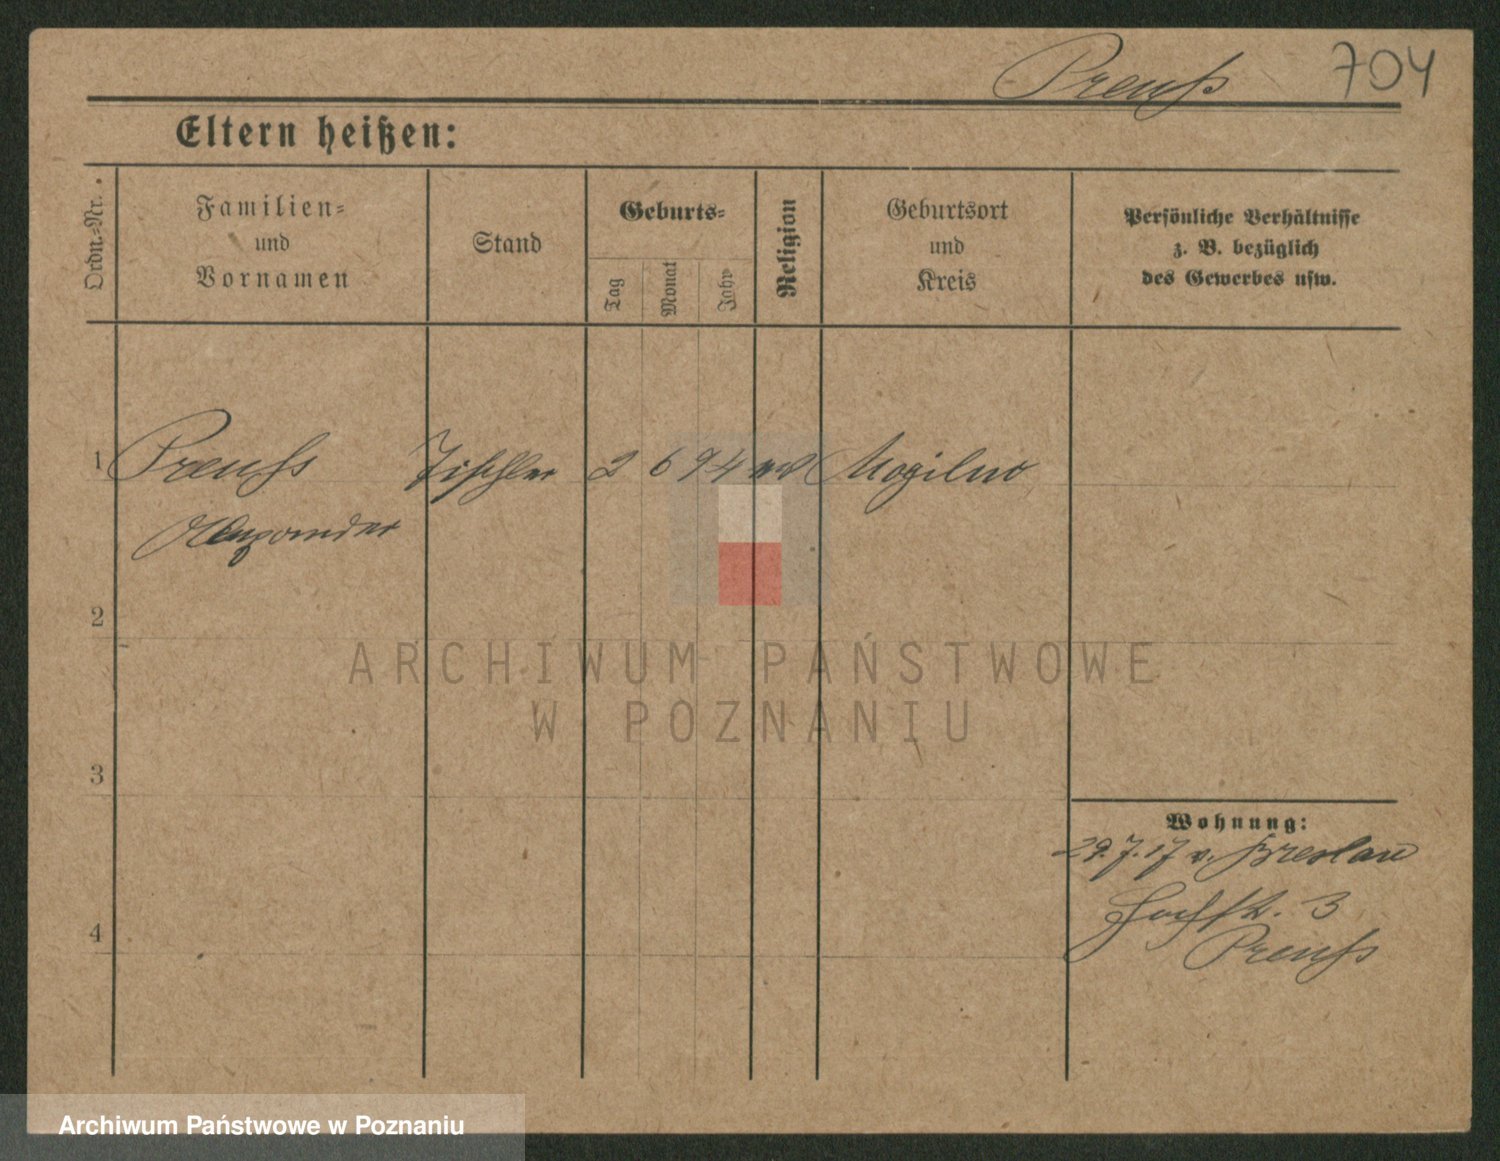 Preuß 704
Eltern heißen:
Ordn.-Nr.
Familien-
und
Vornamen
Stand
Geburts-
Tag
Monat
Jahr
Religion
Geburtsort
und
Kreis
Persönliche Verhältnisse
z. B. bezüglich
des Gewerbes usw.
1 Preuß Tischler 2 6 94 ev Mogilno
Alexander
2
3
4
Wohnung:
29.7.17 v. Breslau
3
Preuß
ARCHIWUM PAŃSTWOWE
W POZNANIU
Archiwum Państwowe w Poznaniu